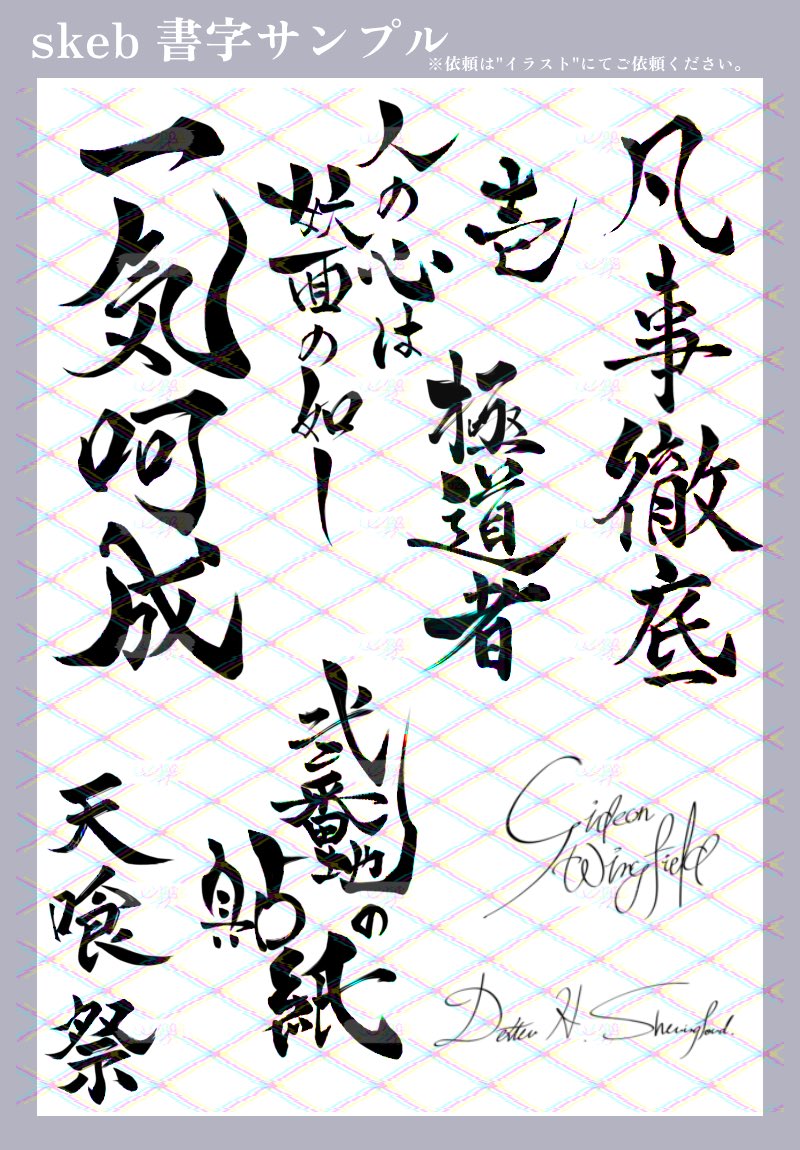 skeb 書字サンプル
※依頼は"イラスト"にてご依頼ください。
凡事徹底
壱
極道者
人の心は
妖面の如し
一気呵成
弐番地の
貼紙
天喰祭
Gideon
Wingfield
H.